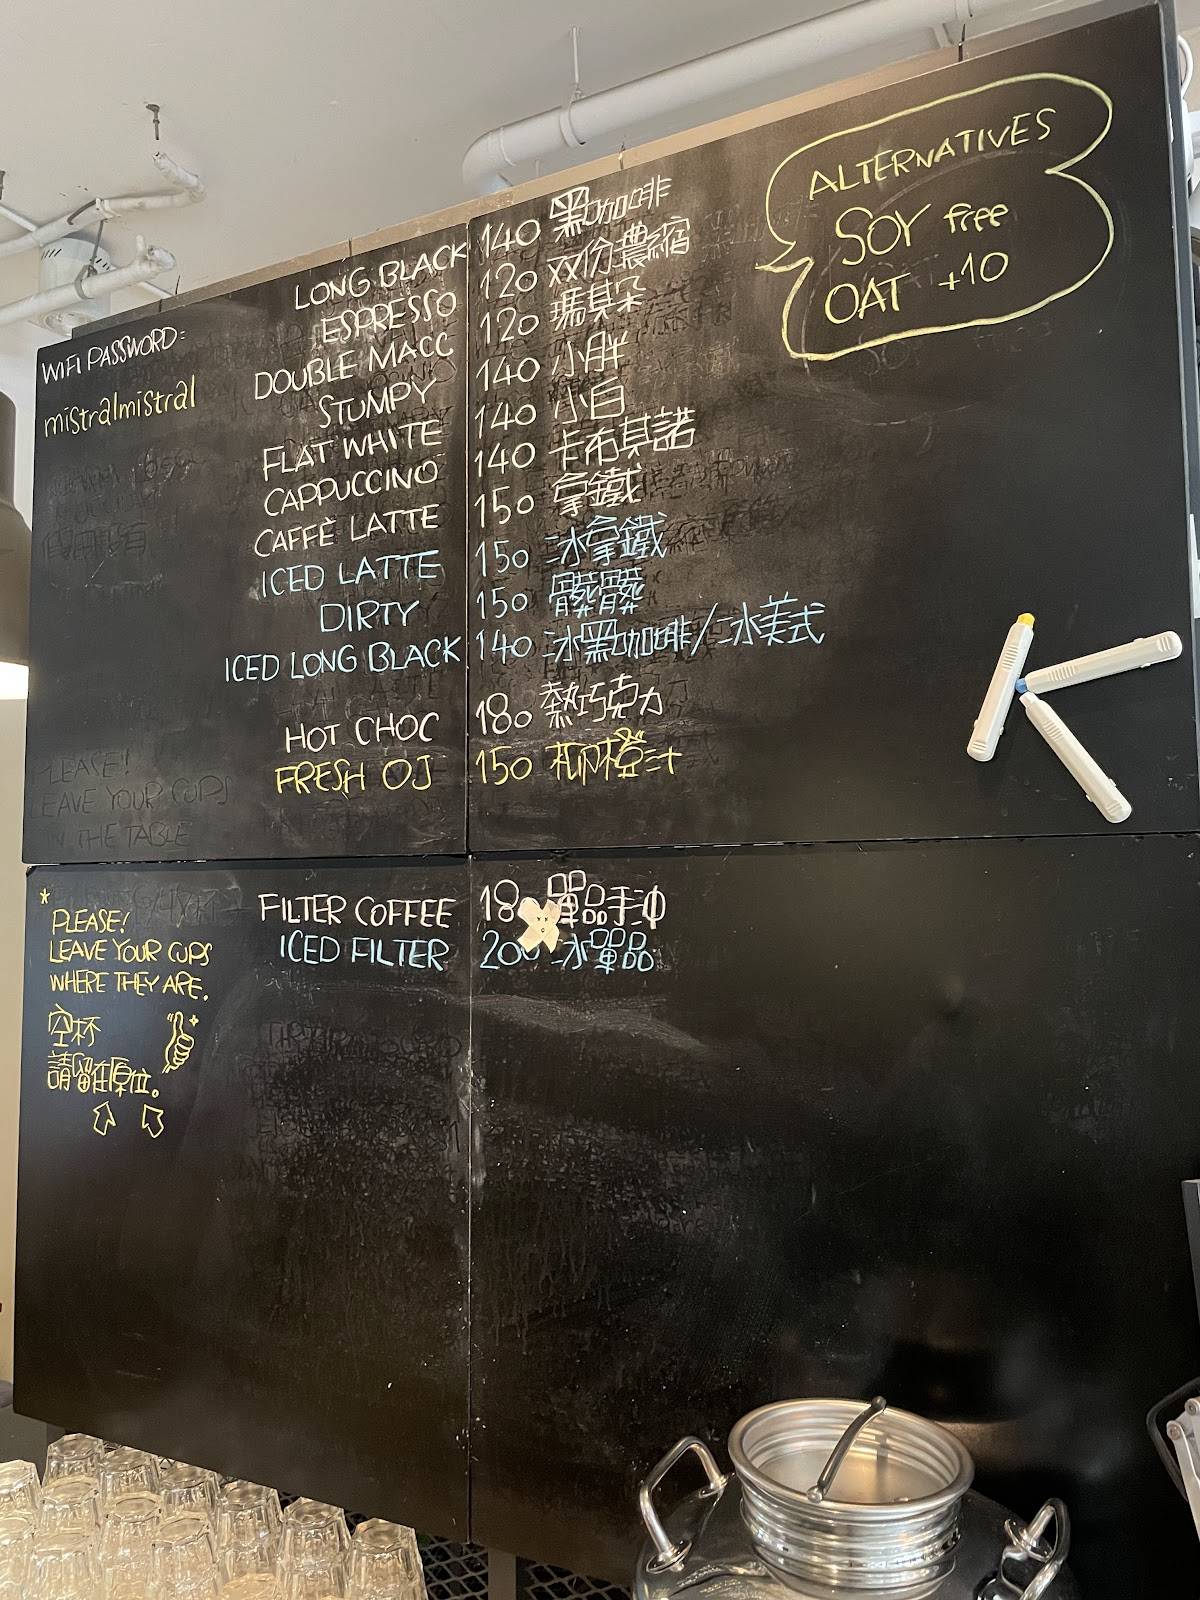 WIFI PASSWORD:
mistralmistral
LONG BLACK 140 黑咖啡
ESPRESSO 120 双份濃縮
DOUBLE MACC 120 瑪其朵
STUMPY 140 小胖
FLAT WHITE 140 小白
CAPPUCCINO 140 卡布其諾
CAFFÈ LATTE 150 拿鐵
ICED LATTE 150 冰拿鐵
DIRTY 150 髒髒
ICED LONG BLACK 140 冰黑咖啡/冰美式
HOT CHOC 180 熱巧克力
FRESH OJ 150 柳橙汁
ALTERNATIVES
SOY free
OAT +10
PLEASE!!
LEAVE YOUR CUPS
IN THE TABLE
FILTER COFFEE 180 單品手沖
ICED FILTER 200 冰單品
* PLEASE!
LEAVE YOUR CUPS
WHERE THEY ARE.
空杯
請留在原位。